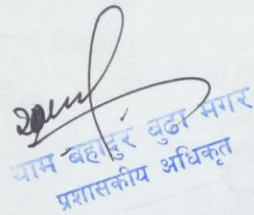 थाम बहादुर बुढा मगर
प्रशासकीय अधिकृत